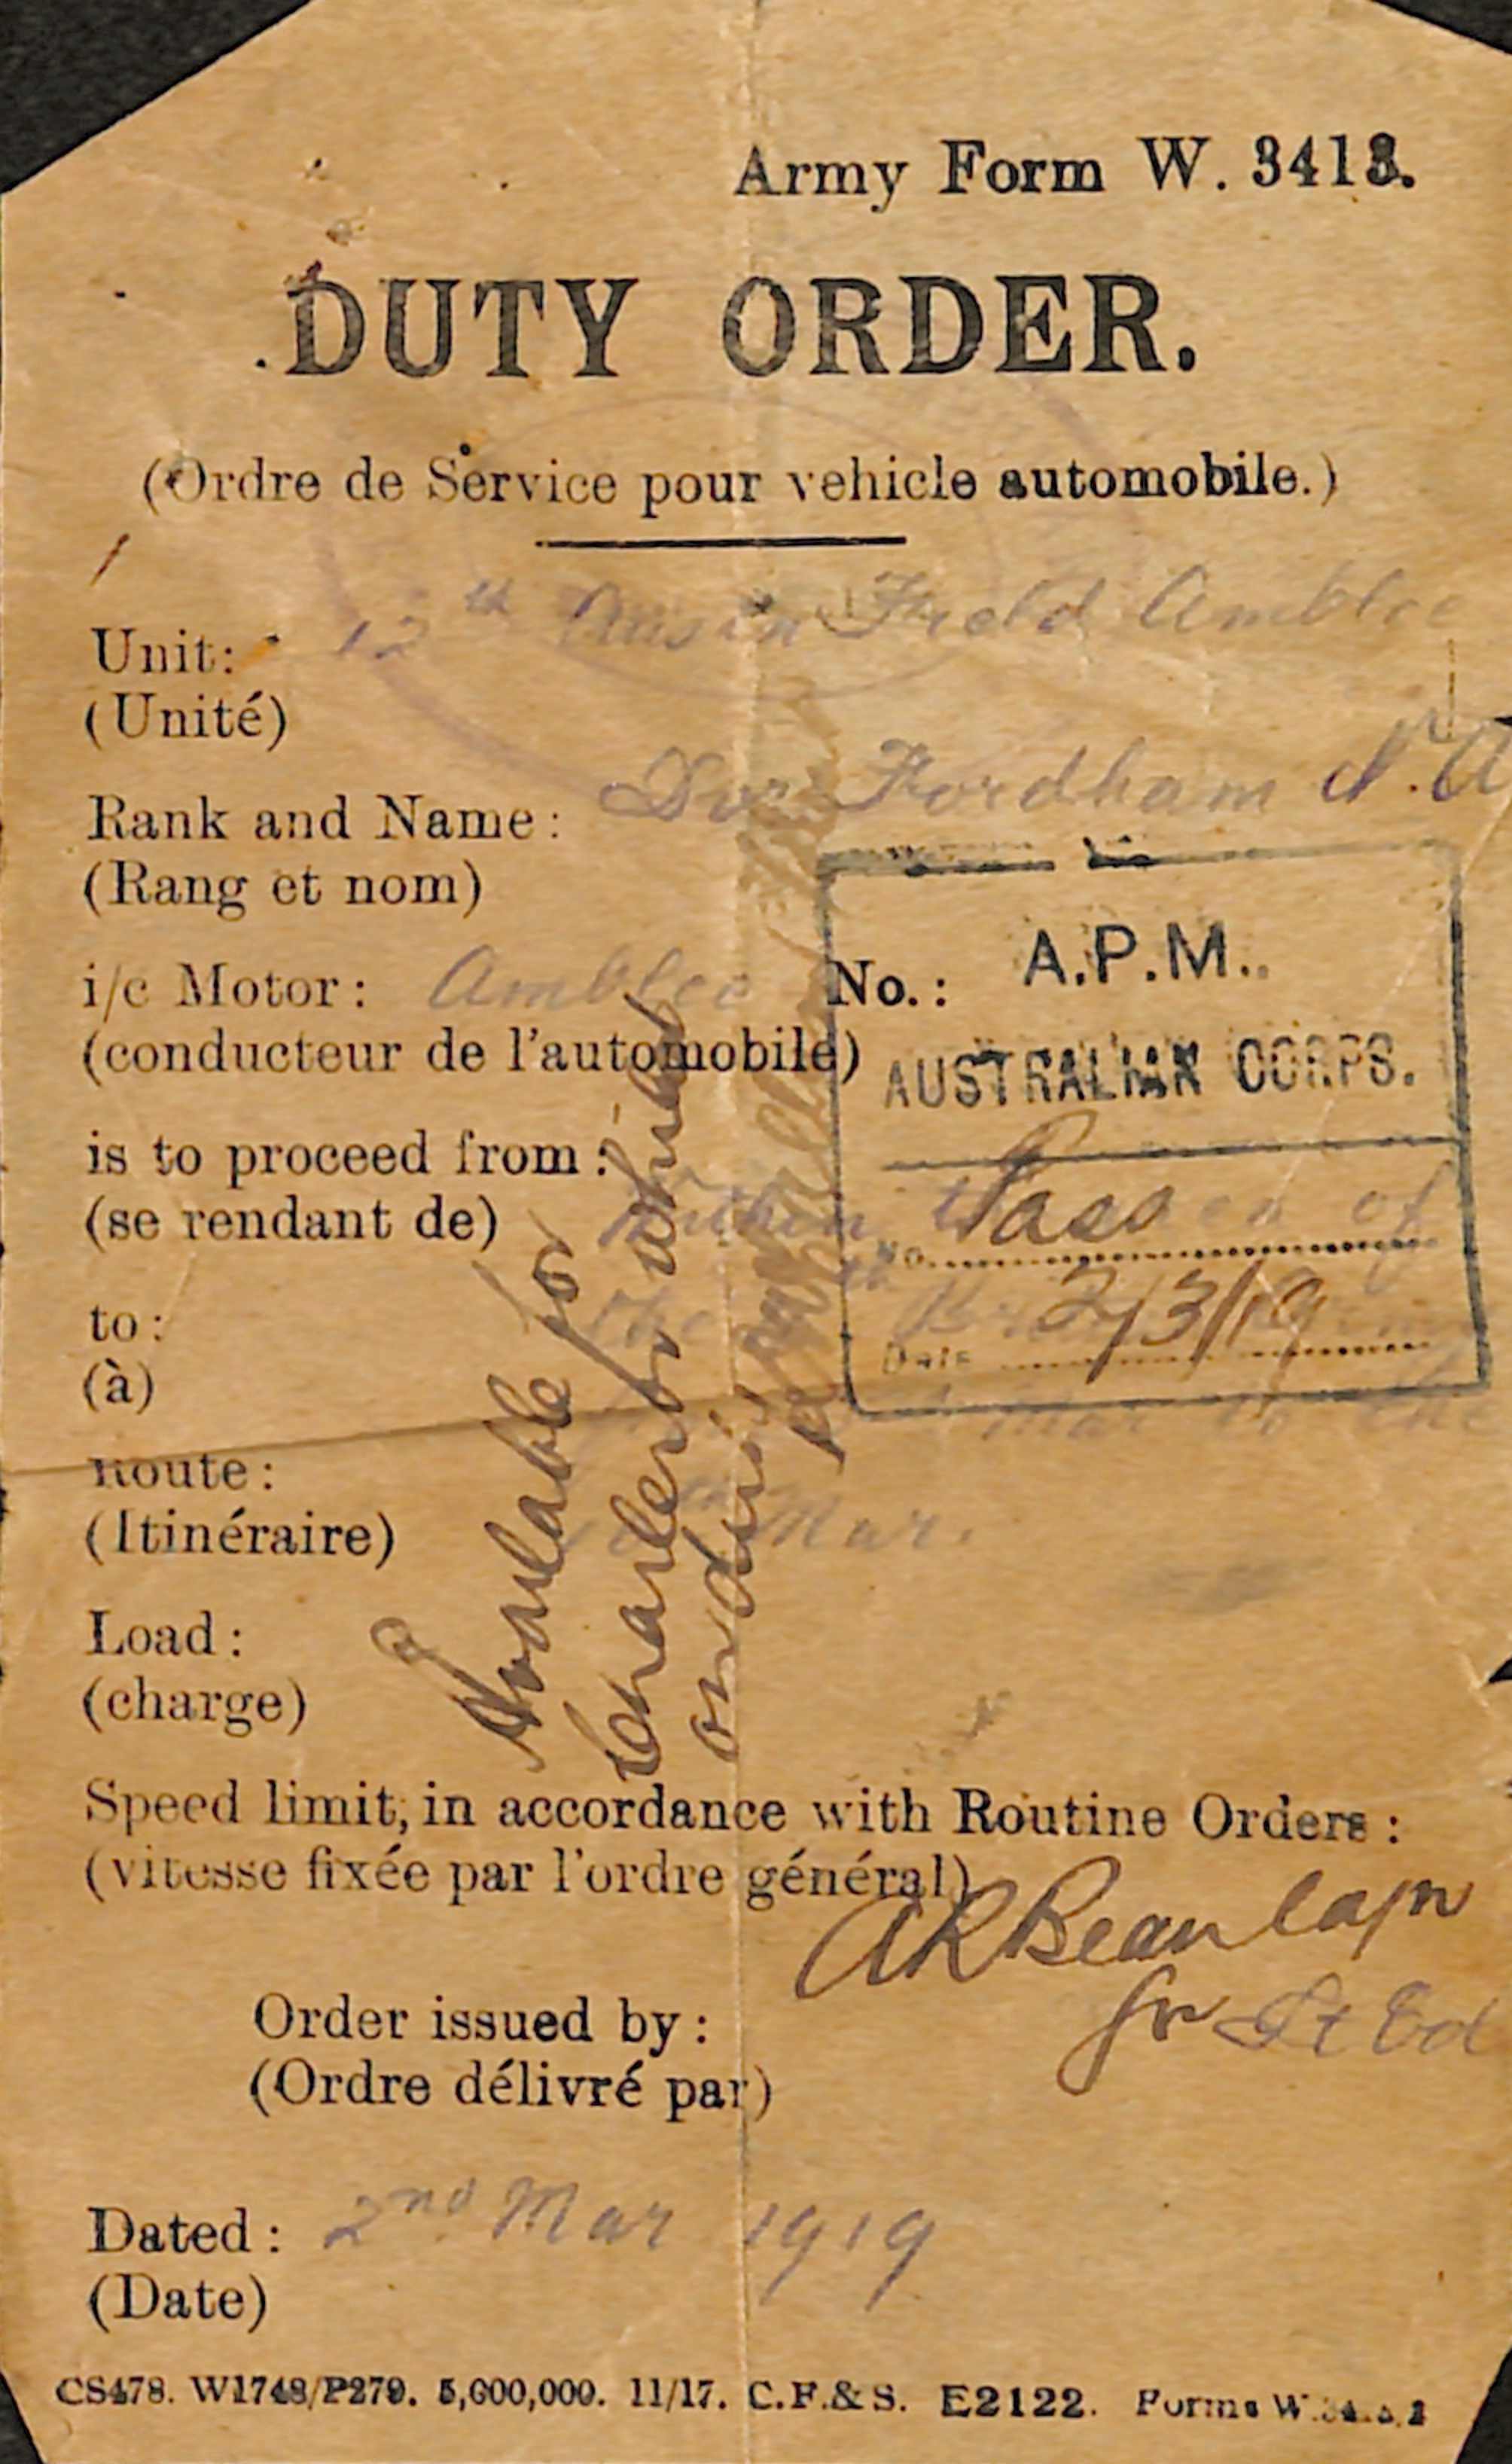 Army Form W. 3413.
DUTY ORDER.
(Ordre de Service pour vehicle automobile.)
Unit: 12th Austn Field Amblce
(Unité)
Rank and Name: Dvr Fordham N.A
(Rang et nom)
i/c Motor: Amblce No.:
(conducteur de l'automobile)
A.P.M.
AUSTRALIAN CORPS.
is to proceed from: Within the area of
(se rendant de)
Pass
No.
to: the
(à)
Date 2/3/19
Mar to the
Route:
Mar.
(Itinéraire)
Load:
(charge)
Available for
Charleroi when
on duty
Speed limit, in accordance with Routine Orders:
(vitesse fixée par l'ordre général)
ARBean Capn
for Lt Col
Order issued by:
(Ordre délivré par)
Dated: 2nd Mar 1919
(Date)
CS478. W1748/P279. 5,000,000. 11/17. C.F.& S. E2122. Forms